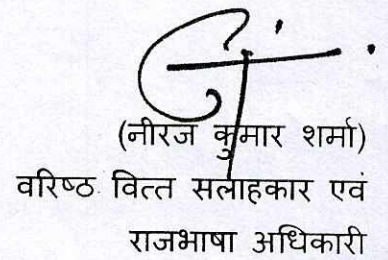 (नीरज कुमार शर्मा)
वरिष्ठ वित्त सलाहकार एवं
राजभाषा अधिकारी